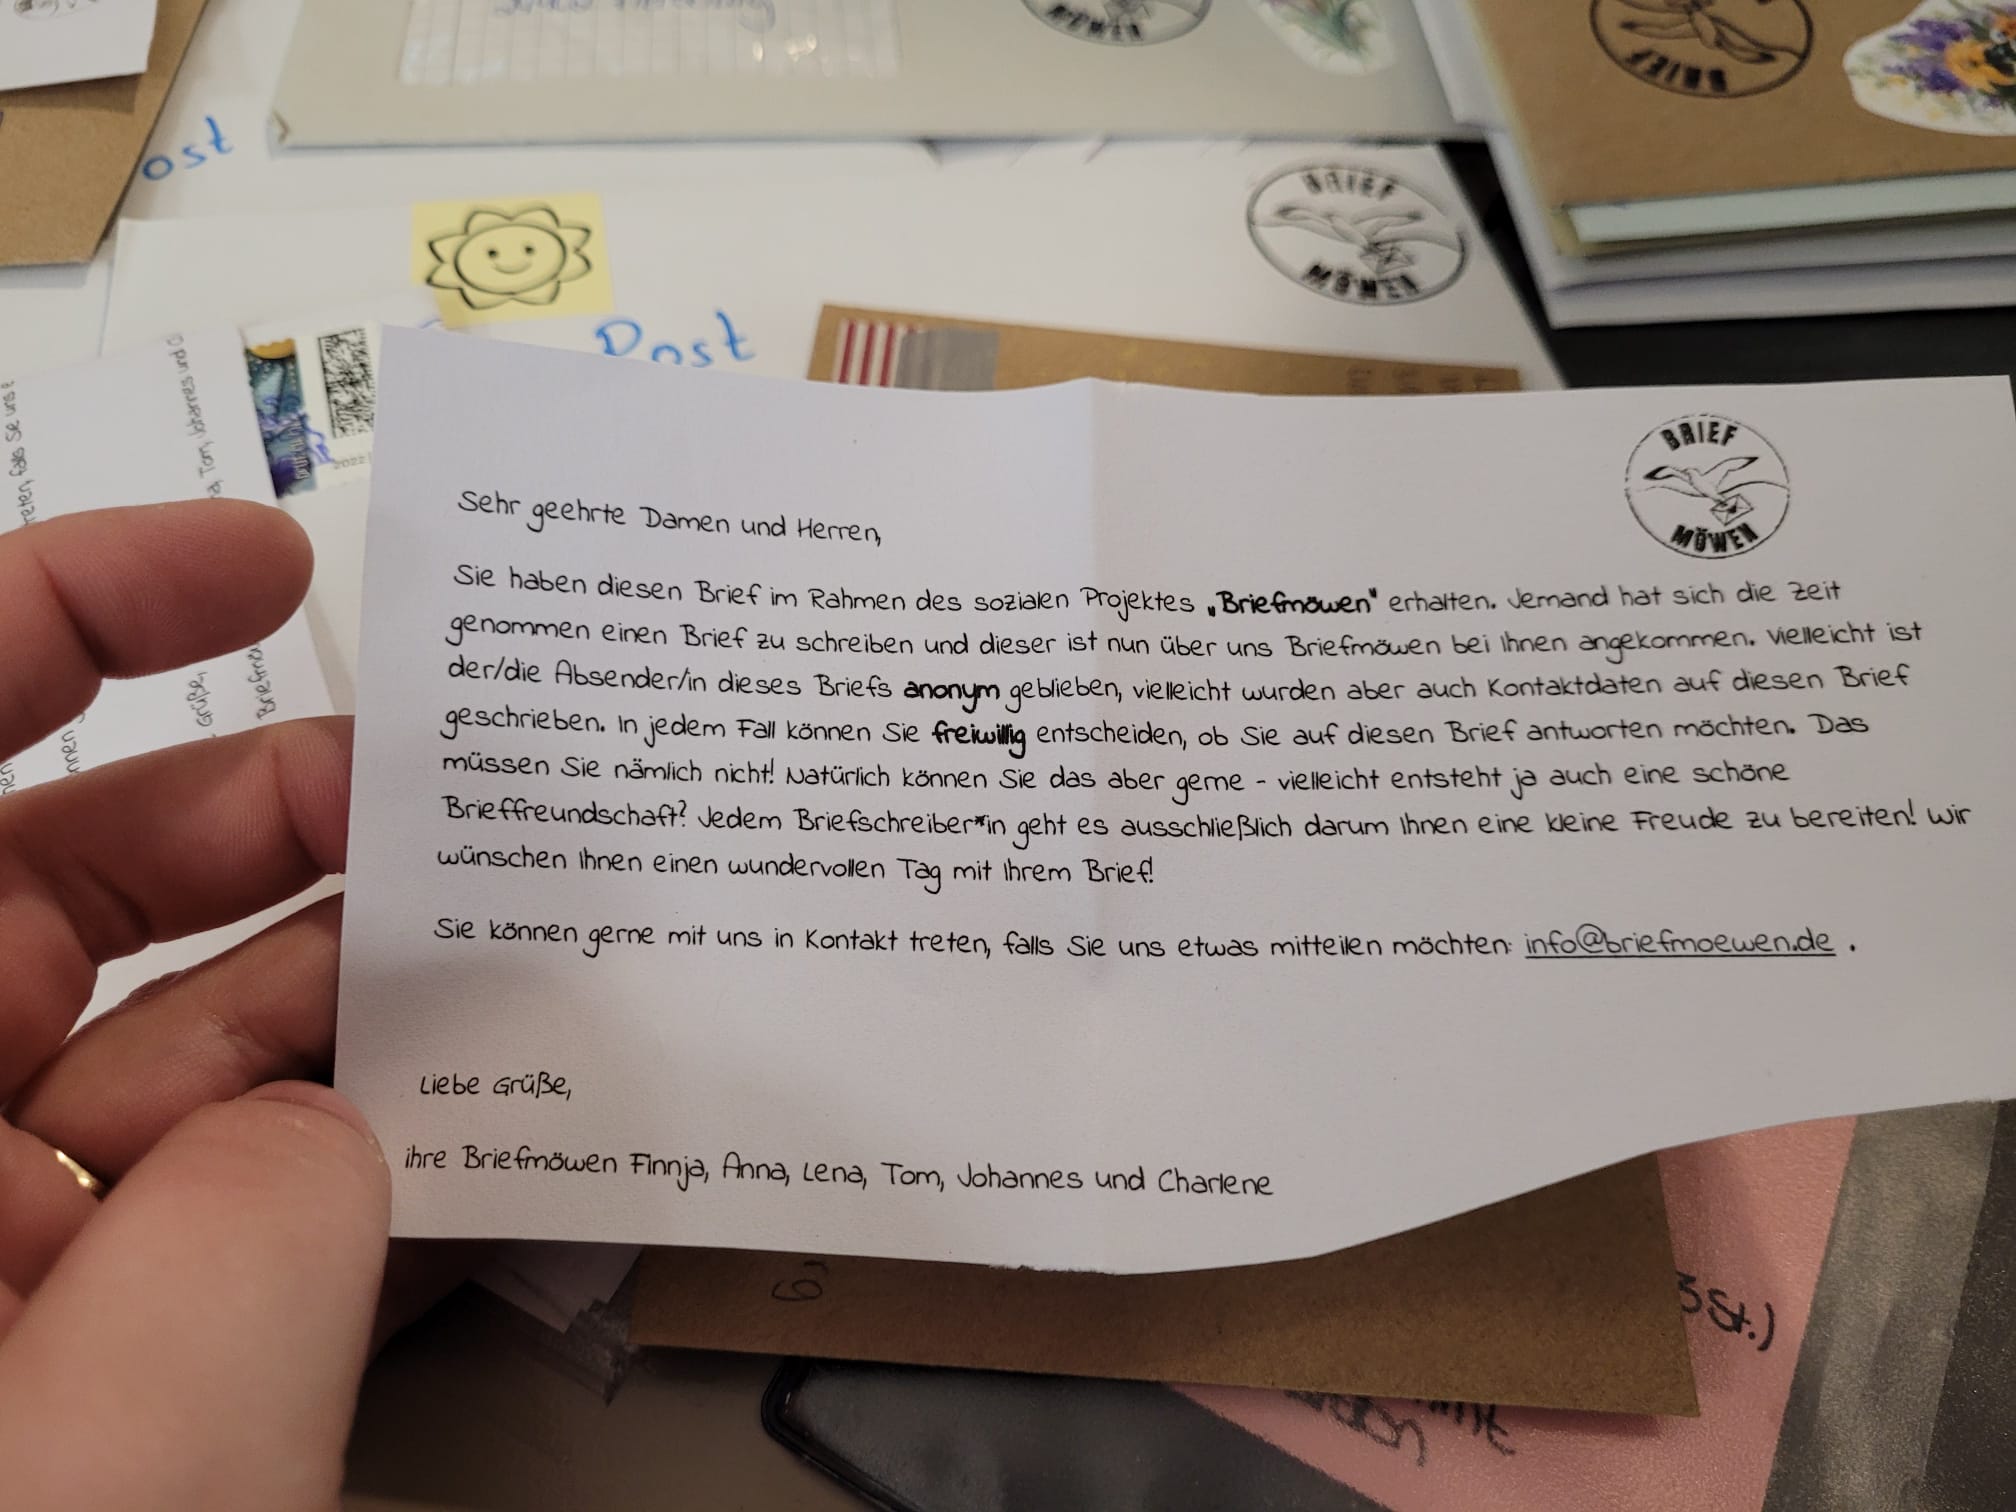 ost
BRIEF
MÖWEN
MÖWEN
BRIEF
Post
2022
BRIEF
MÖWEN
Sehr geehrte Damen und Herren,
Sie haben diesen Brief im Rahmen des sozialen Projektes „Briefmöwen" erhalten. Jemand hat sich die Zeit
genommen einen Brief zu schreiben und dieser ist nun über uns Briefmöwen bei Ihnen angekommen. Vielleicht ist
der/die Absender/in dieses Briefs anonym geblieben, vielleicht wurden aber auch Kontaktdaten auf diesen Brief
geschrieben. In jedem Fall können Sie freiwillig entscheiden, ob Sie auf diesen Brief antworten möchten. Das
müssen Sie nämlich nicht! Natürlich können Sie das aber gerne - vielleicht entsteht ja auch eine schöne
Brieffreundschaft? Jedem Briefschreiber*in geht es ausschließlich darum Ihnen eine kleine Freude zu bereiten! Wir
wünschen Ihnen einen wundervollen Tag mit Ihrem Brief!
Sie können gerne mit uns in Kontakt treten, falls Sie uns etwas mitteilen möchten: info@briefmoewen.de .
Liebe Grüße,
ihre Briefmöwen Finnja, Anna, Lena, Tom, Johannes und Charlene
reten, falls Sie uns e
Tom, Johannes und C
Grüße,
3 St.)